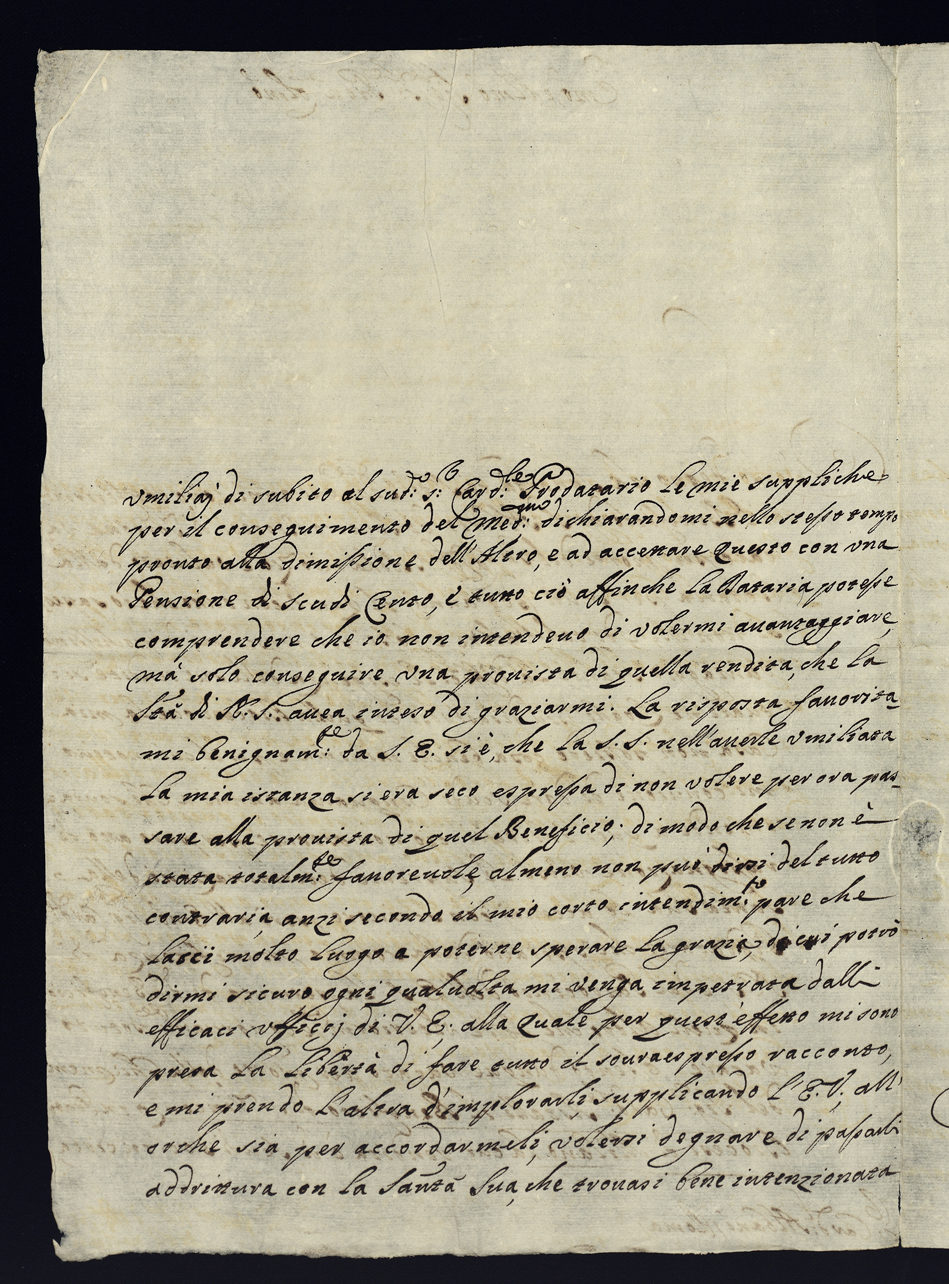 vmiliaj di subito al sud:º s:r Card:le Prodatario le mie suppliche
per il conseguimento del med:mo dichiarandomi nello stesso tempo
pronto alla dimissione dell'Altro, e ad accettare questo con vna
Pensione di scudi Cento, e tutto ciò affinche la Dataria potesse
comprendere che io non intendeuo di volermi auantaggiare,
mà solo conseguire vna prouista di quella rendita, che la
Stà di N. S. auea inteso di graziarmi. La risposta fauorita-
mi benignam:te da S. E. si è, che la S. S. nell'auerle vmiliata
la mia istanza si era seco espressa di non volere per ora pas-
sare alla prouista di quel Beneficio; di modo che se non è
stata totalm:te fauoreuole, almeno non può dirsi del tutto
contraria, anzi secondo il mio corto intendim:to pare che
lascii molto luogo a poterne sperare la grazia, di cui potrò
dirmi sicuro ogni qualuolta mi venga impetrata dalli
efficaci vfficij di V. E. alla quale per quest'effetto mi sono
presa la libertà di fare tutto il souraespresso racconto,
e mi prendo l'altra d'implorarli, supplicando l'E. V. all'
orche sia per accordarmeli, volersi degnare di passarli
addrittura con la Santà Sua, che trouasi bene intenzionata